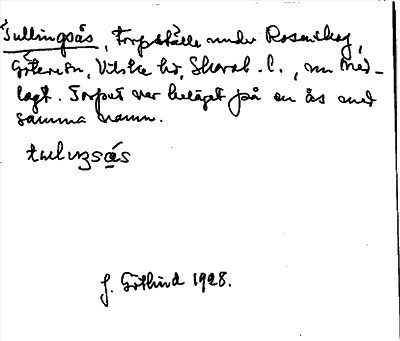 Tullingsås, Torpställe under Rosenskog,
Göteve sn, Vilske hd, Skarab. l., nu ned-
lagt. Torpet var beläget på en ås med
samma namn.
tulıŋsås
J. Götlind 1928.